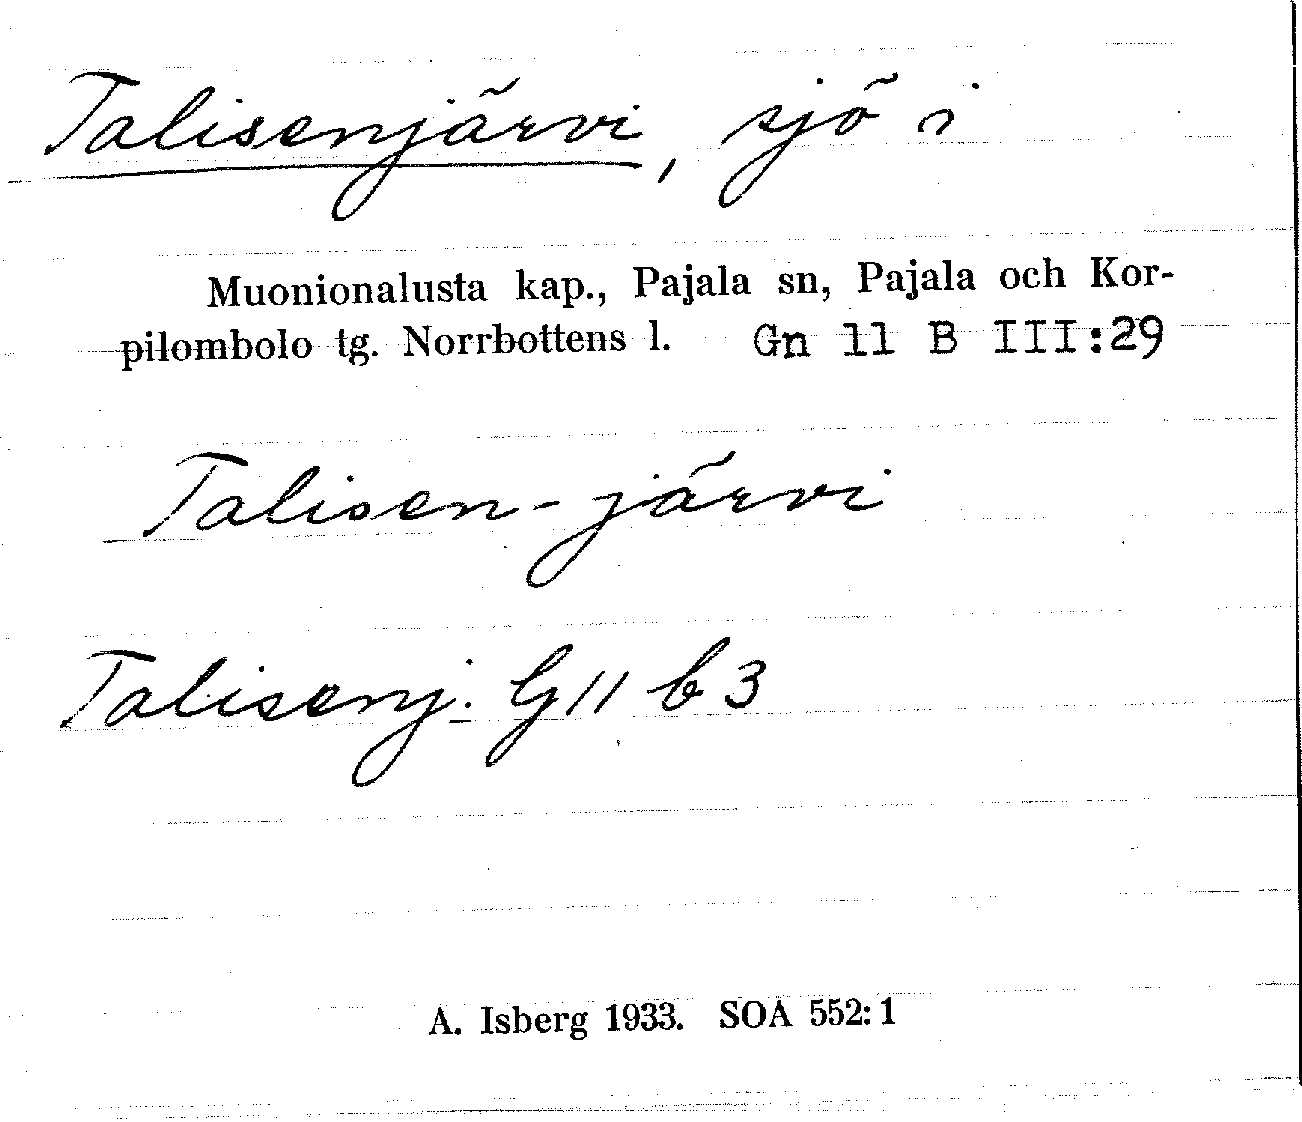 Talisenjärvi, sjö i
Muonionalusta kap., Pajala sn, Pajala och Kor-
pilombolo tg. Norrbottens l. Gn 11 B III:29
Talisen-järvi
Talisenj. G 11 b 3
A. Isberg 1933. SOA 552:1